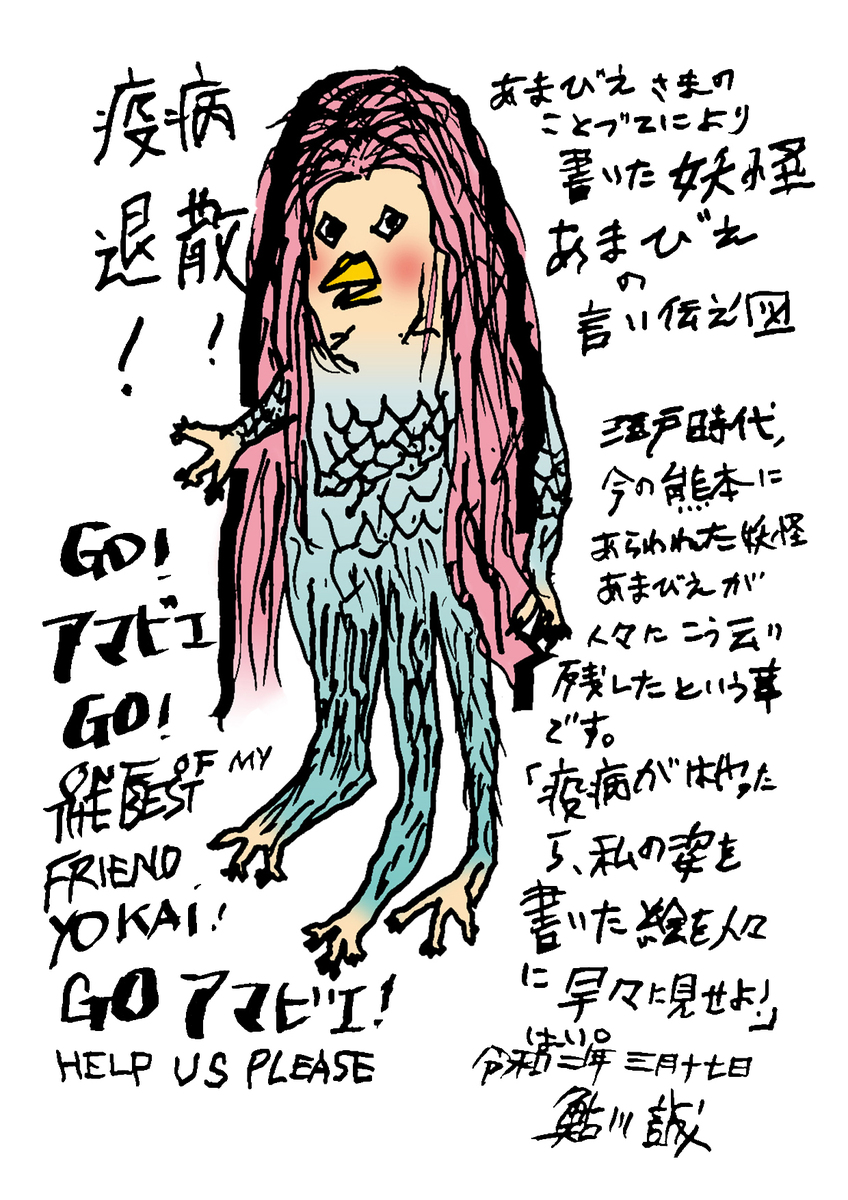 疫病
退散
！！
あまびえさまの
ことづてにより
書いた妖怪
あまびえ
の
言い伝え図
江戸時代、
今の熊本に
あらわれた妖怪
あまびえが
人々にこう云い
残したという事
です。
「疫病がはやった
ら、私の姿を
書いた絵を人々
に早々に見せよ！」
はい。
令和二年三月十七日
鮎川誠
GO!
アマビエ
GO!
ONE OF MY
THE BEST
FRIEND
YOKAI!
GO アマビエ!
HELP US PLEASE